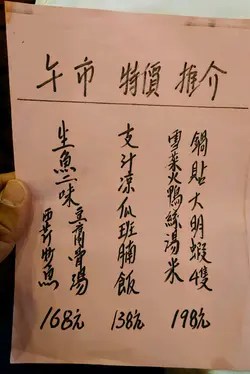 午市 特價 推介
鍋貼大明蝦4隻
雪菜火鴨絲湯米
198元
支汁凉瓜班腩飯
138元
坐魚二味豆腐骨湯
西芹炒魚
168元